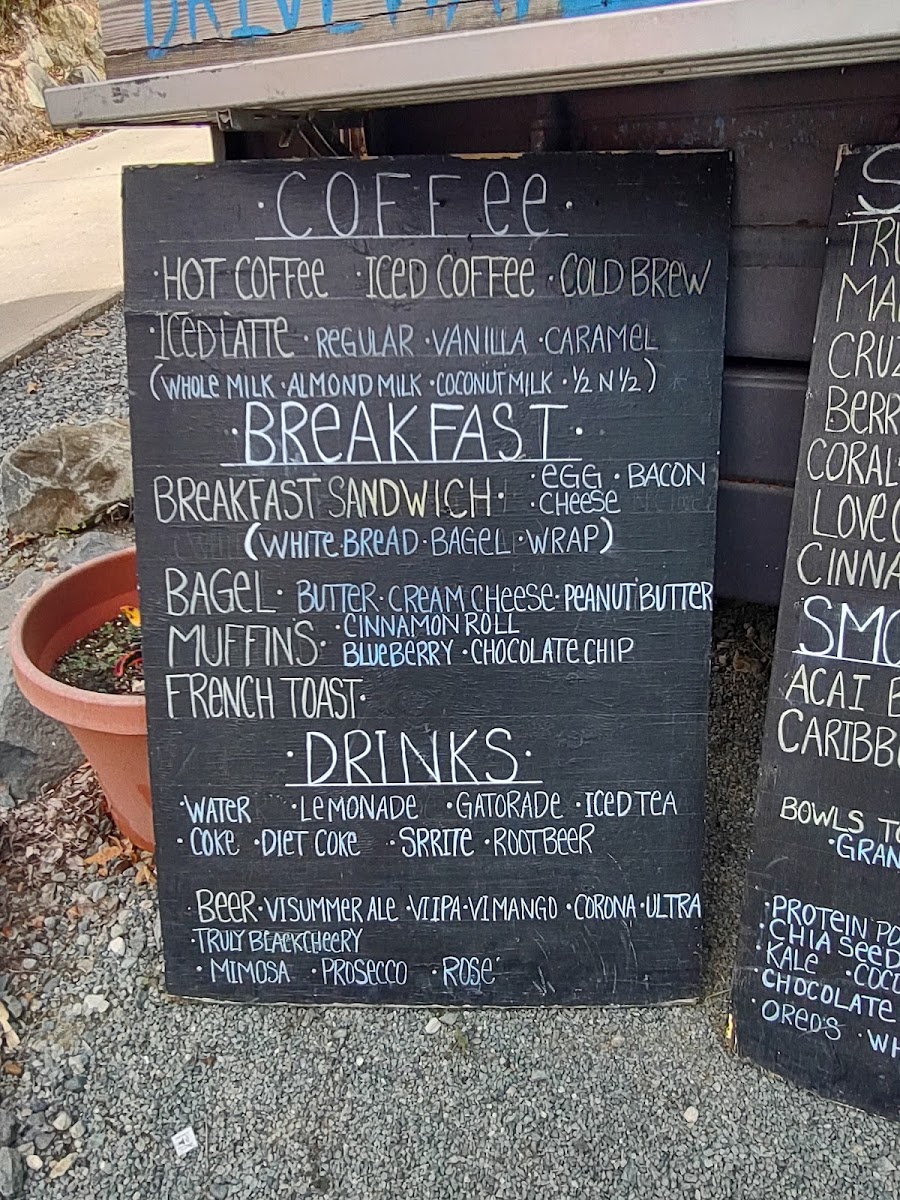 ·COFFee·
·HOT COFFee ·ICED COFFee ·COLD BREW
·ICED LATTE ·ReGULAR ·VANILLA ·CARAMEL
(WHOLE MILK ·ALMOND MILK ·COCONUT MILK ·½ N ½)
·BReAKFAST·
BReAKFAST SANDWICH· ·eGG ·BACON
·CHeeSe
(WHITE BReAD ·BAGeL ·WRAP)
BAGeL· BUTTeR· CReAM CHeeSe· PeANUT BUTTeR
MUFFINS· ·CINNAMON ROLL
BLUeBeRRY ·CHOCOLATE CHIP
FReNCH TOAST·
·DRINKS·
·WATeR ·LeMONADe ·GATORADe ·ICED TeA
·COKe ·DIeT COKe ·SRRITe ·ROOTBeeR
·BeeR· VI SUMMeR ALe ·VI IPA· VI MANGO ·CORONA ·ULTRA
·TRULY BLACKCHeeRY
·MIMOSA ·PROSeCCO ·ROSé
CORAL
LOVe
SMO
ACAI B
BOWLS TO
·GRAN
·PROTeIN
·CHIA SeeD
KALe ·COC
·CHOCOLATe
OReO'S ·WH